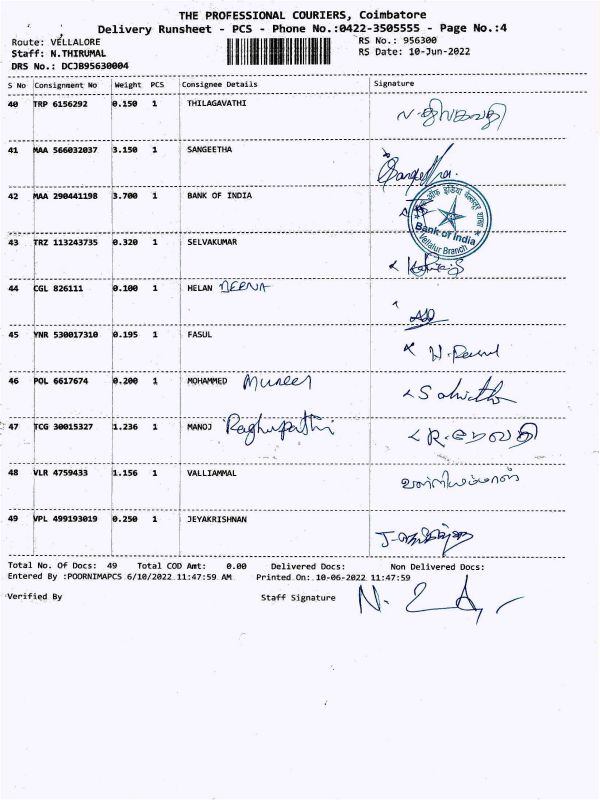 THE PROFESSIONAL COURIERS, Coimbatore
Delivery Runsheet - PCS - Phone No.:0422-3505555 - Page No.:4
Route: VELLALORE
RS No.: 956300
Staff: N.THIRUMAL
RS Date: 10-Jun-2022
DRS No.: DCJB95630004
S No Consignment No Weight PCS Consignee Details Signature
40 TRP 6156292 0.150 1 THILAGAVATHI ந.திலகவதி
41 MAA 566032037 3.150 1 SANGEETHA Sangeetha.
42 MAA 290441198 3.700 1 BANK OF INDIA
Bank of India
Vellalur Branch
43 TRZ 113243735 0.320 1 SELVAKUMAR
44 CGL 826111 0.100 1 HELAN MEENA
45 YNR 530017310 0.195 1 FASUL
46 POL 6617674 0.200 1 MOHAMMED Muneer
47 TCG 30015327 1.236 1 MANOJ Raghupathi R.ரேவதி
48 VLR 4759433 1.156 1 VALLIAMMAL வள்ளியம்மாள்
49 VPL 499193019 0.250 1 JEYAKRISHNAN
Total No. Of Docs: 49 Total COD Amt: 0.00 Delivered Docs: Non Delivered Docs:
Entered By :POORNIMAPCS 6/10/2022 11:47:59 AM Printed On: 10-06-2022 11:47:59
Verified By Staff Signature